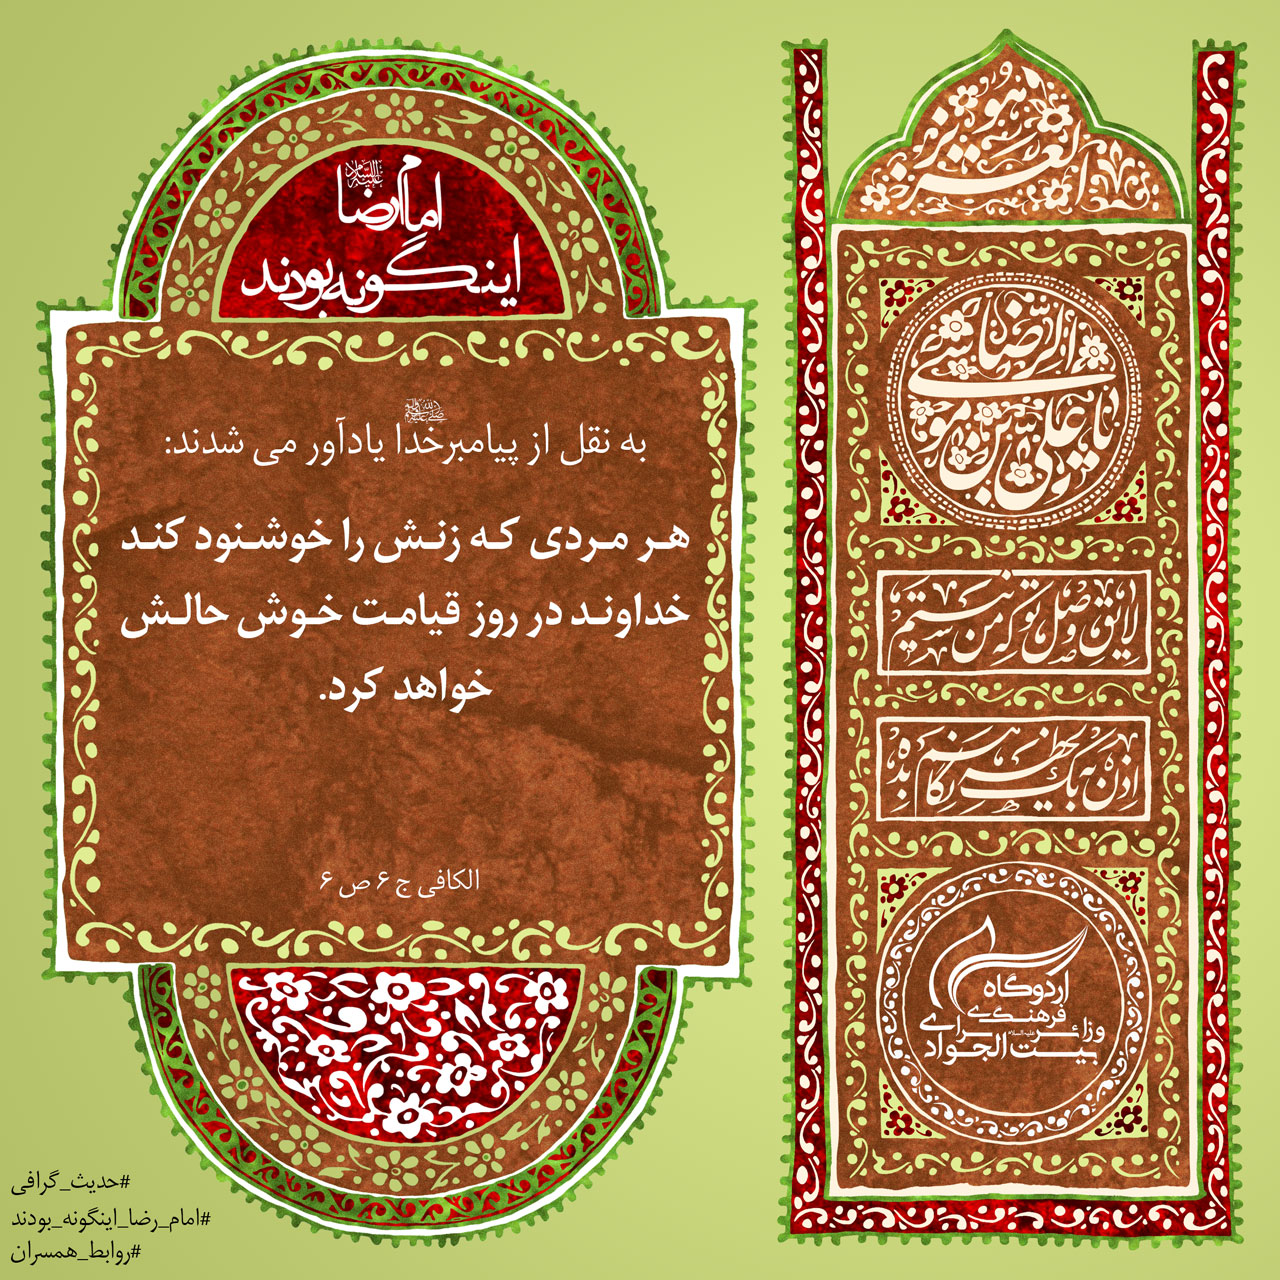 هو العزیز
یا علی بن موسی الرضا
لایق وصل تو که من نیستم
اذن به یک لحظه نگاهم بده
اردوگاه
فرهنگی
و زائرسرای
علیه السلام
بیت الجواد
علیه السلام
امام رضا
اینگونه بودند
صلی الله علیه و آله
به نقل از پیامبرخدا یادآور می شدند:
هر مردی که زنش را خوشنود کند
خداوند در روز قیامت خوش حالش
خواهد کرد.
الکافی ج ۶ ص ۶
#حدیث_گرافی
#امام_رضا_اینگونه_بودند
#روابط_همسران